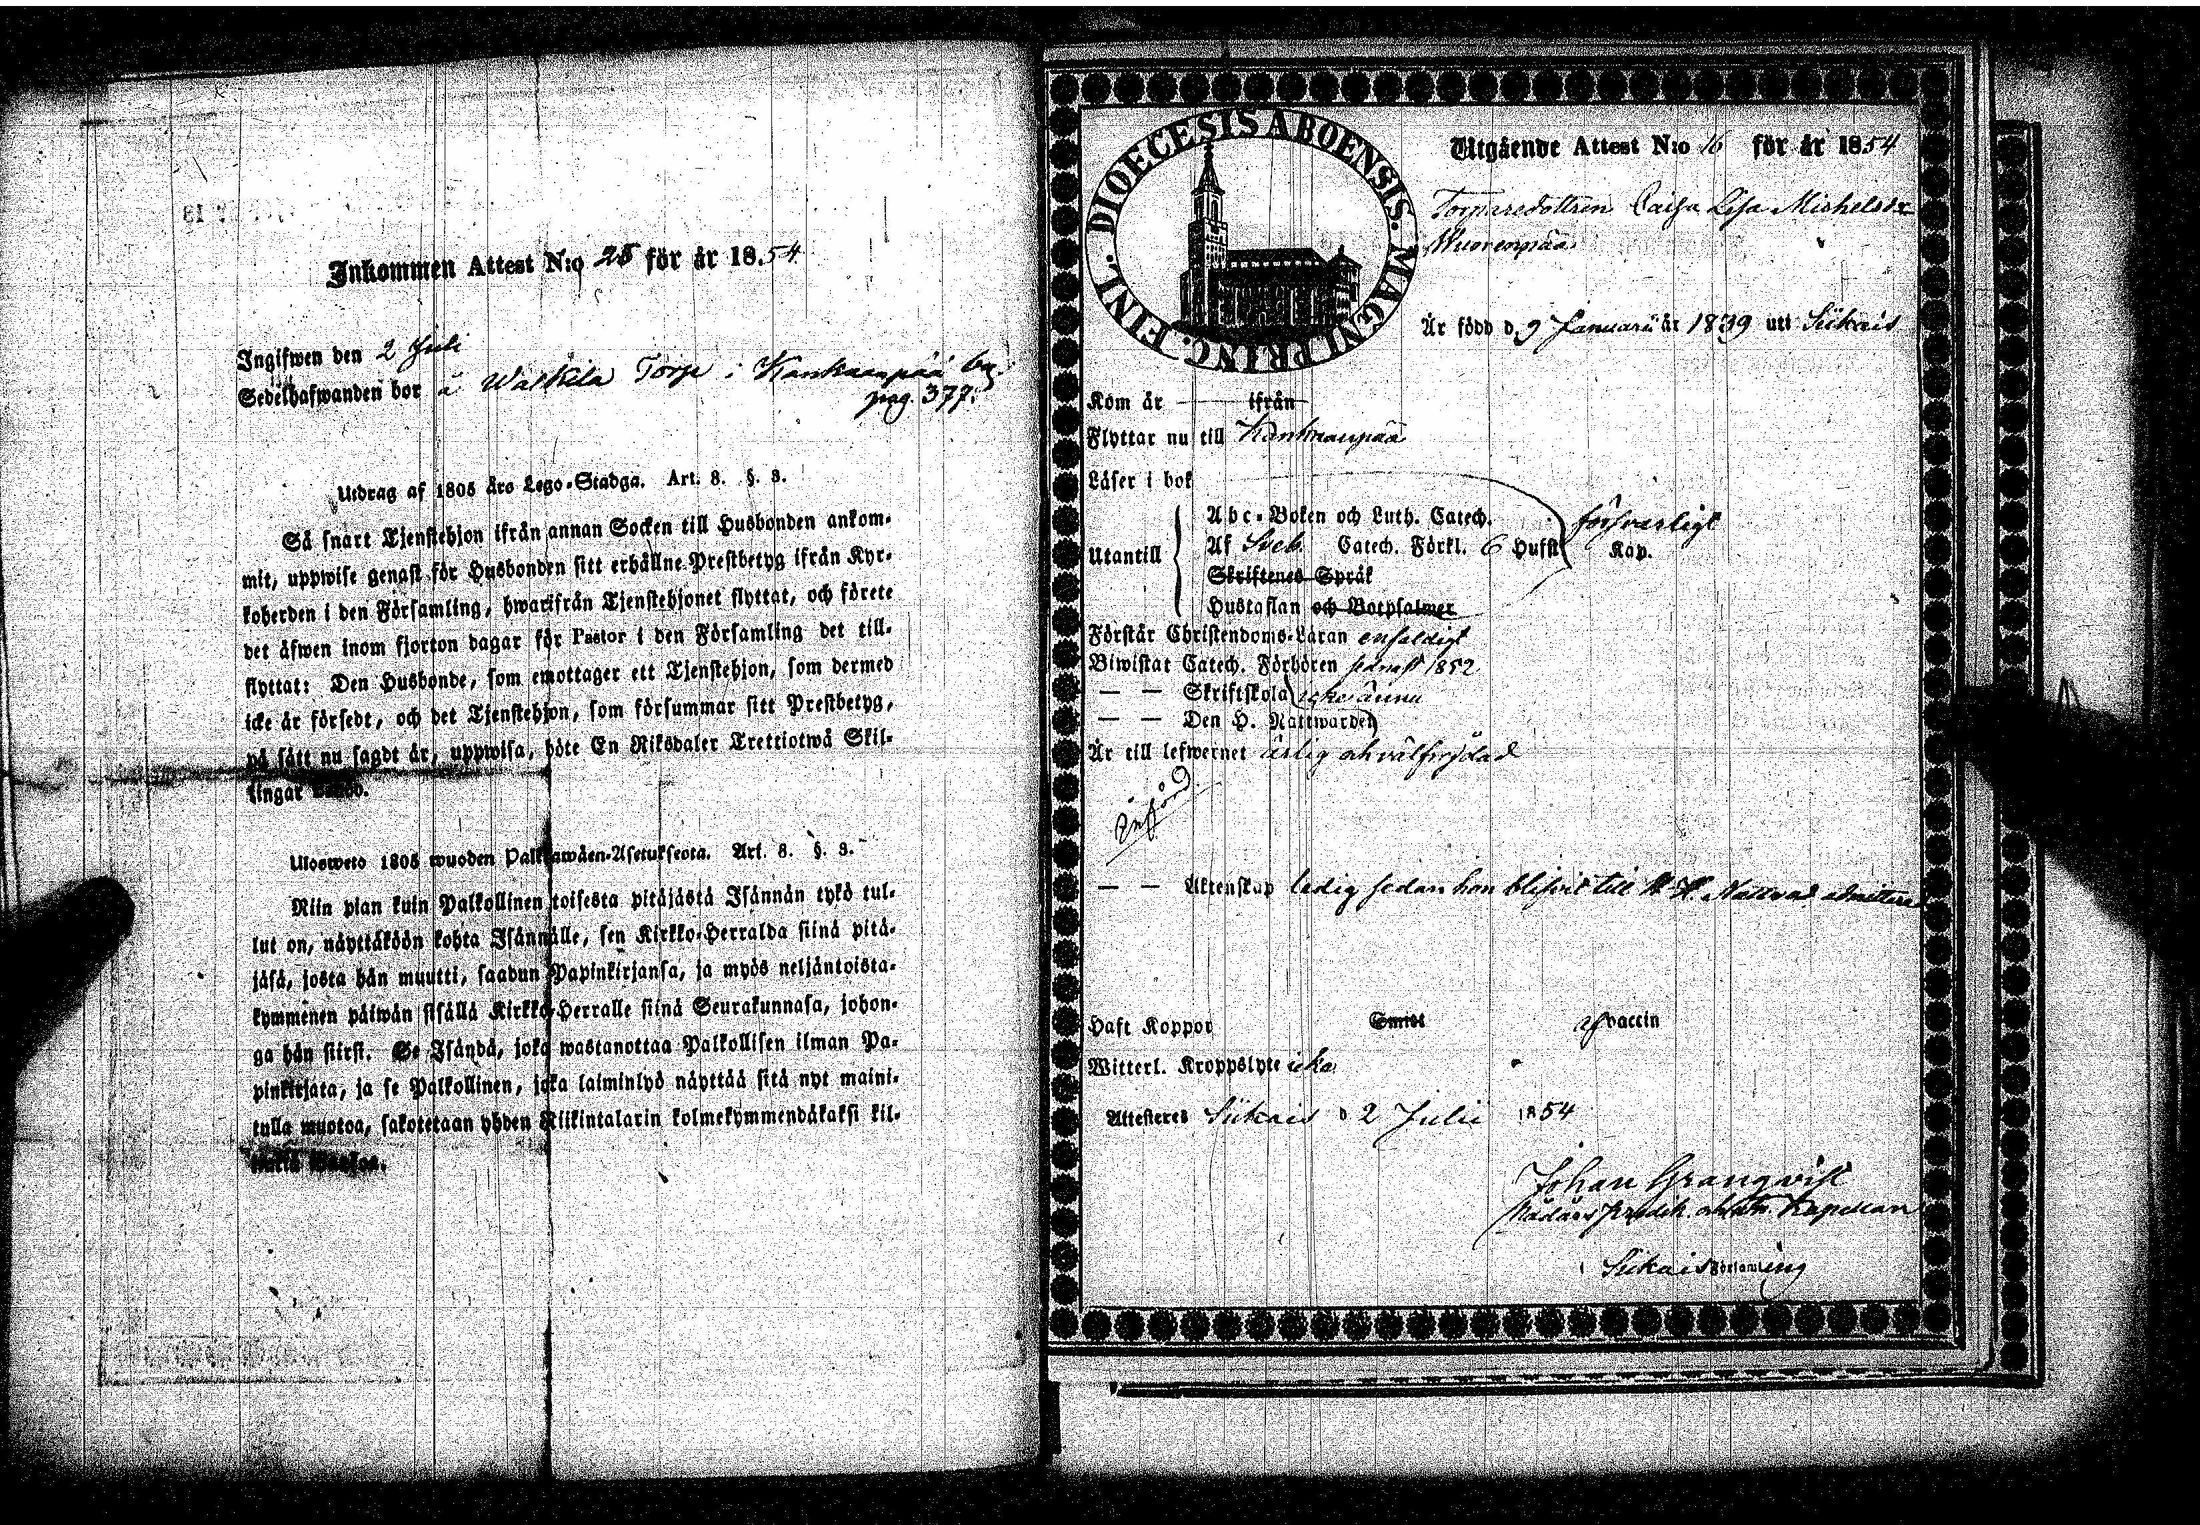 Inkommen Attest N:o 25 för år 1854
Ingifwen den 2 Juli
Sedelhafwanden bor å Walkila Torp i Kankaanpää by.
pag. 377.
Utdrag af 1805 års Lego-Stadga. Art. 8. §. 3.
Så snart Tjenstehjon ifrån annan Socken till Husbonden ankom-
mit, uppwise genast för Husbonden sitt erhållne Prestbetyg ifrån Kyr-
koherden i den Församling, hwarifrån Tjenstehjonet flyttat, och förete
det äfwen inom fjorton dagar för Pastor i den Församling det till-
flyttat: Den Husbonde, som emottager ett Tjenstehjon, som dermed
icke är försedt, och det Tjenstehjon, som försummar sitt Prestbetyg,
på sätt nu sagdt är, uppwisa, böte En Riksdaler Trettiotwå Skil-
lingar Banco.
Ulosweto 1805 wuoden Palkkawäen-Asetuksesta. Art. 8. §. 3.
Niin pian kuin Palkollinen toisesta pitäjästä Isännän tykö tul-
lut on, näyttäköön kohta Isännälle, sen Kirkko-Herralda siinä pitä-
jäsä, josta hän muutti, saadun Papinkirjansa, ja myös neljäntoista-
kymmenen päiwän sisällä Kirkko-Herralle siinä Seurakunnasa, johon-
ga hän siirsi. Se Isändä, joka wastanottaa Palkollisen ilman Pa-
pinkirjata, ja se Palkollinen, joka laiminlyö näyttää sitä nyt maini-
tulla muotoa, sakotetaan yhden Riikintalarin kolmekymmendäkaksi kil-
DIOECESIS ABOENSIS. MAGNI PRINC. FINL.
Utgående Attest N:o 16 för år 1854
Torparedottren Caisa Lisa Michelsdr
Wuorenpää
Är född d. 9 Januarii år 1839 uti Siikais
Kom år ifrån
Flyttar nu till Kankaanpää
Läser i bok
Utantill
Abc-Boken och Luth. Catech. försvarligt
Af Sveb. Catech. Förkl. 6 Hufst Kap.
Skriftenes Språk
Hustaflan och Botpsalmer
Förstår Christendoms-Läran enfaldigt
Biwistat Catech. Förhören senast 1852
— — Skriftskola icke ännu
— — Den H. Nattwarden
Är till lefwernet ärlig och välfrejdad
Införd
— — Äktenskap ledig sedan hon blifvit till H. H. Nattvard admitterad
Haft Koppor Smitt af vaccin
Witterl. Kroppslyte icke
Attesteres Siikais d 2 Julii 1854
Johan Granqvist
Nådårs predik. och Kapellan
i Siikais Församling